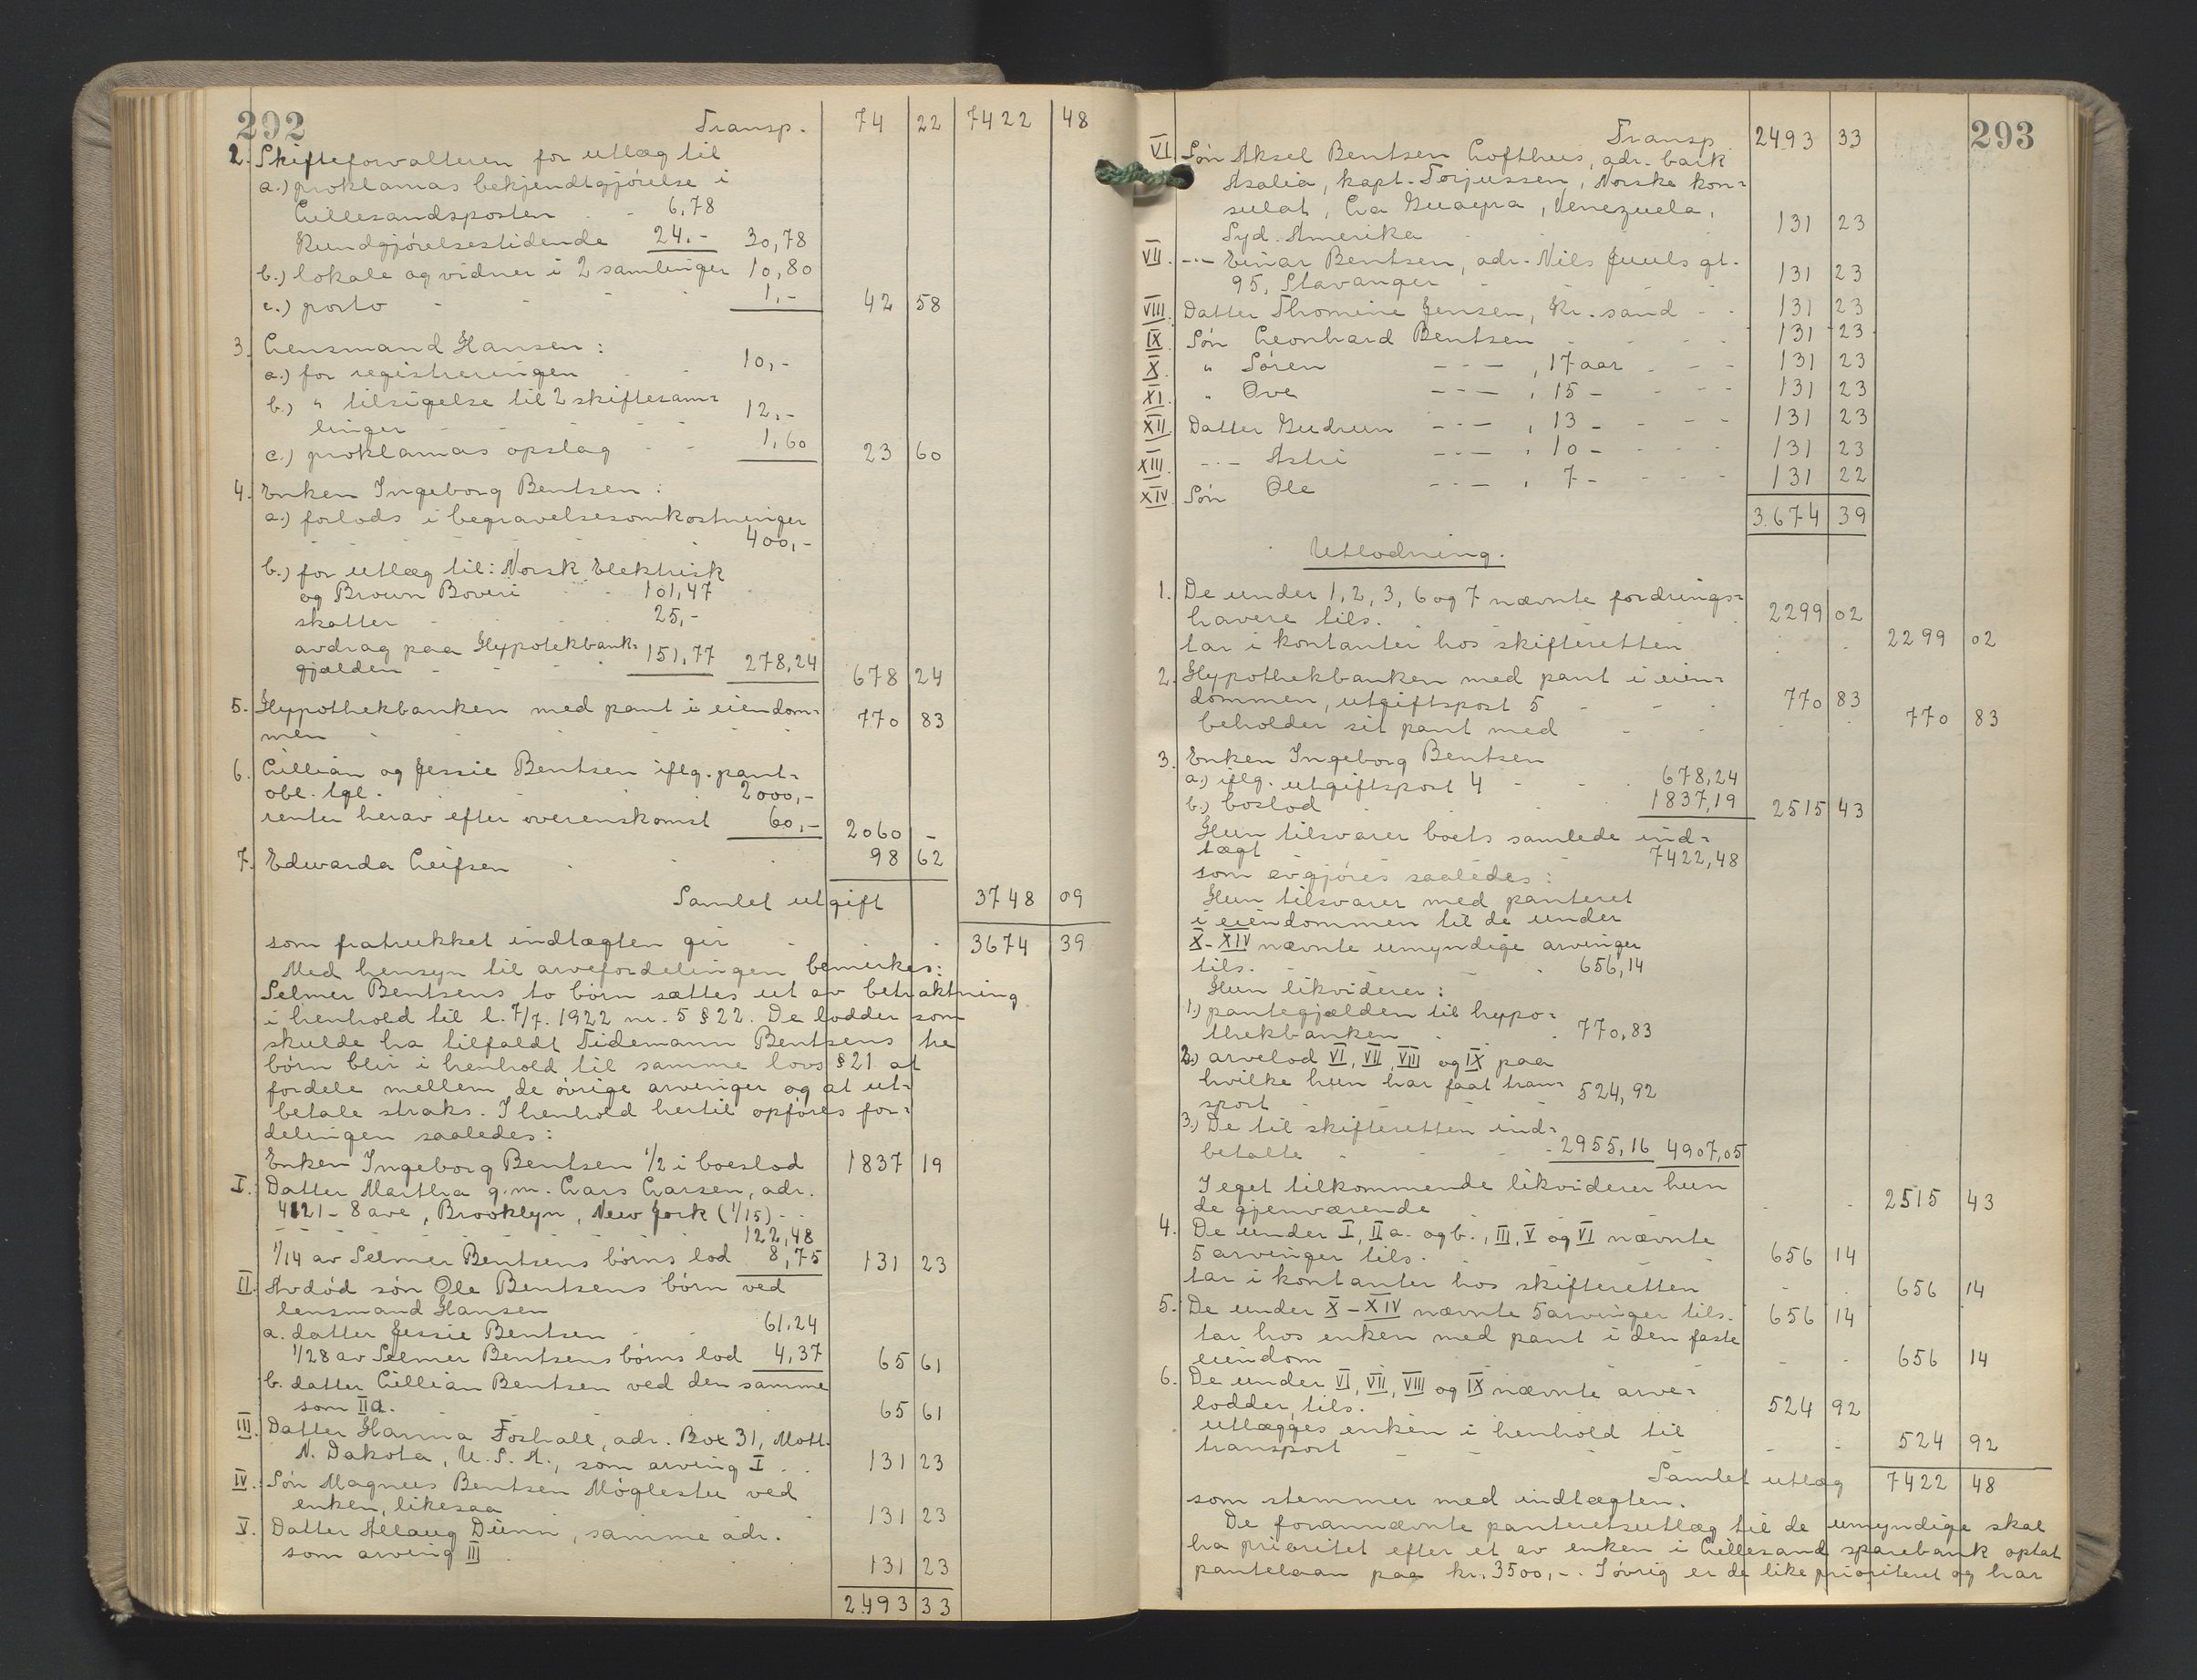 292
Transp. 74 22 7422 48
2. Skifteforvalteren for utlæg til
a.) proklamas bekjendtgjørelse i
Lillesandsposten - - 6,78
Kundgjørelsestidende 24.- 30,78
b.) lokale og vidner i 2 samlinger 10,80
c.) porto - - - - 1,- 42 58
3. Lensmand Hansen:
a.) for registreringen - - 10,-
b.) " tilsigelse til 2 skiftesam=
linger - - - - 12,-
c.) proklamas opslag - - 1,60 23 60
4. Enken Ingeborg Bentsen:
a.) forlods i begravelsesomkostninger
- - - - - 400,-
b.) for utlæg til: Norsk Elektrisk
og Brown Boveri - - 101,47
skatter - - - 25,-
avdrag paa Hypotekbank=
gjælden - - - 151,77 278,24 678 24
5. Hypothekbanken med pant i eiendom=
men - - - - - 770 83
6. Lillian og Jessie Bentsen iflg. pant=
obl. tgl. - - - 2000,-
renter herav efter overenskomst 60,- 2060 -
7. Edwarda Leifsen - - - 98 62
Samlet utgift 3748 09
som fratrukket indtægten gir - - 3674 39
Med hensyn til arvefordelingen bemerkes:
Selmer Bentsens to børn sættes ut av betraktning
i henhold til l. 7/7. 1922 nr. 5 § 22. De lodder som
skulde ha tilfaldt Tidemann Bentsens tre
børn blir i henhold til samme lovs § 21 at
fordele mellem de øvrige arvinger og at ut=
betale straks. I henhold hertil opføres for=
delingen saaledes:
Enken Ingeborg Bentsen 1/2 i boeslod 1837 19
I. Datter Martha g.m. Lars Larsen, adr.
4121 - 8 ave, Brooklyn, New York (1/15) - -
- - - - - 122,48
1/14 av Selmer Bentsens børns lod 8,75 131 23
II. Avdød søn Ole Bentsens børn ved
lensmand Hansen
a. datter Jessie Bentsen - - 61,24
1/28 av Selmer Bentsens børns lod 4,37 65 61
b. datter Lillian Bentsen ved den samme
som IIa. - - - - 65 61
III. Datter Hanna Foshall, adr. Box 31, Mott.
N. Dakota, U.S.A., som arving I - - 131 23
IV. Søn Magnus Bentsen Møglestu ved
enken, likesaa - - - 131 23
V. Datter Allaug Dünn, samme adr.
som arving III - - - 131 23
2493 33
293
Transp. 2493 33
VI. Søn Aksel Bentsen Lofthus, adr. bark
Asalia, kapt. Torjussen, Norske kon=
sulat, La Guayra, Venezuela,
Syd. Amerika - - - 131 23
VII. -"- Einar Bentsen, adr. Nils Juuls gt.
95, Stavanger - - - 131 23
VIII. Datter Thomine Jensen, Kr.sand - - 131 23
IX. Søn Leonhard Bentsen - - - - 131 23
X. " Søren -"- , 17 aar - - - 131 23
XI. " Ove -"- , 15 - - - - 131 23
XII. Datter Gudrun -"- , 13 - - - - 131 23
XIII. -"- Astri -"- , 10 - - - - 131 23
XIV. Søn Ole -"- , 7 - - - - 131 22
3.674 39
Utlodning.
1. De under 1, 2, 3, 6 og 7 nævnte fordrings=
havere tils. - - - - 2299 02
tar i kontanter hos skifteretten - - 2299 02
2. Hypothekbanken med pant i eien=
dommen, utgiftspost 5 - - - 770 83
beholder sit pant med - - - - 770 83
3. Enken Ingeborg Bentsen
a.) iflg. utgiftspost 4 - - - 678,24
b.) boslod - - - - 1837,19 2515 43
Hun tilsvarer boets samlede ind=
tægt 7422,48
som avgjøres saaledes:
Hun tilsvarer med panteret
i eiendommen til de under
X-XIV nævnte umyndige arvinger
tils. - - - - 656,14
Hun likviderer:
1.) pantegjælden til hypo=
thekbanken - - - 770,83
2.) arvelod VI, VII, VIII og IX paa
hvilke hun har faat tran=
sport - - - - 524,92
3.) De til skifteretten ind=
betalte - - - - 2955,16 4907,05
I eget tilkommende likviderer hun
de gjenværende - - 2515 43
4. De under I, II a. og b., III, V og VI nævnte
5 arvinger tils. - - - 656 14
tar i kontanter hos skifteretten - - 656 14
5. De under X-XIV nævnte 5 arvinger tils. 656 14
tar hos enken med pant i den faste
eiendom - - 656 14
6. De under VI, VII, VIII og IX nævnte arve=
lodder, tils. - - - - 524 92
utlægges enken i henhold til
transport - - - - 524 92
Samlet utlæg 7422 48
som stemmer med indtægten.
De forannævnte panteretsutlæg til de umyndige skal
ha prioritet efter et av enken i Lillesand sparebank optat
pantelaan paa kr. 3500,-. I øvrig er de like prioriteret og har